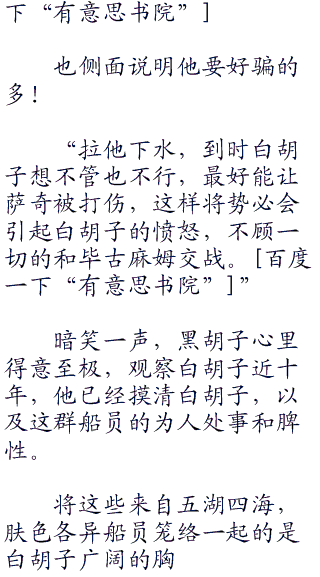 下“有意思书院”]
也侧面说明他要好骗的
多！
“拉他下水，到时白胡
子想不管也不行，最好能让
萨奇被打伤，这样将势必会
引起白胡子的愤怒，不顾一
切的和毕古麻姆交战。[百度
一下“有意思书院”]”
暗笑一声，黑胡子心里
得意至极，观察白胡子近十
年，他已经摸清白胡子，以
及这群船员的为人处事和脾
性。
将这些来自五湖四海，
肤色各异船员笼络一起的是
白胡子广阔的胸